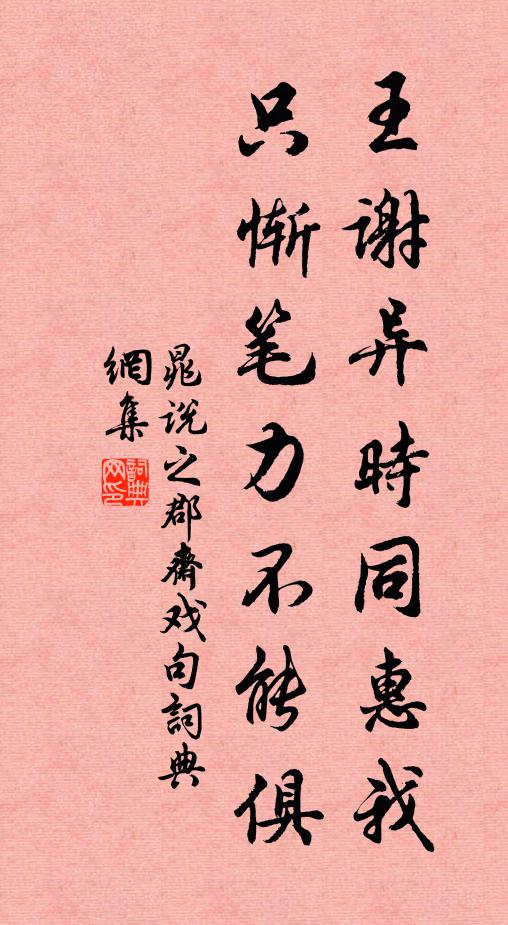 王谢异時同惠我
只惭笔力不能俱
晁说之郡斋戏句詞典
網集
詞典網印